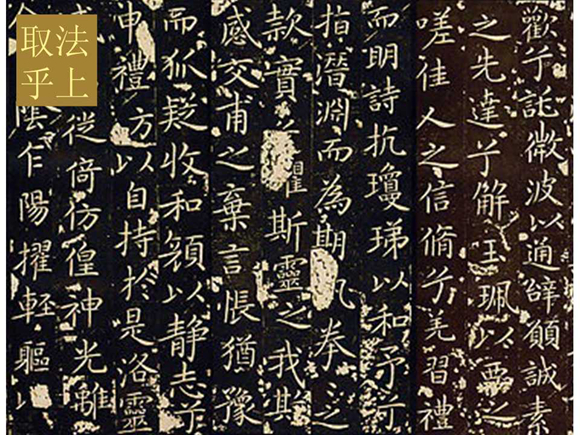 取法
乎上
歡兮託微波以通辭願誠素
之先達兮解玉珮以要之
嗟佳人之信脩兮羌習禮
而明詩抗瓊珶以和予兮
指潛淵而為期執拳〻之
款實兮懼斯靈之我欺
感交甫之棄言悵猶豫
而狐疑收和顏以静志兮
申禮防以自持於是洛靈
徙倚仿徨神光離
陰乍陽擢輕軀以